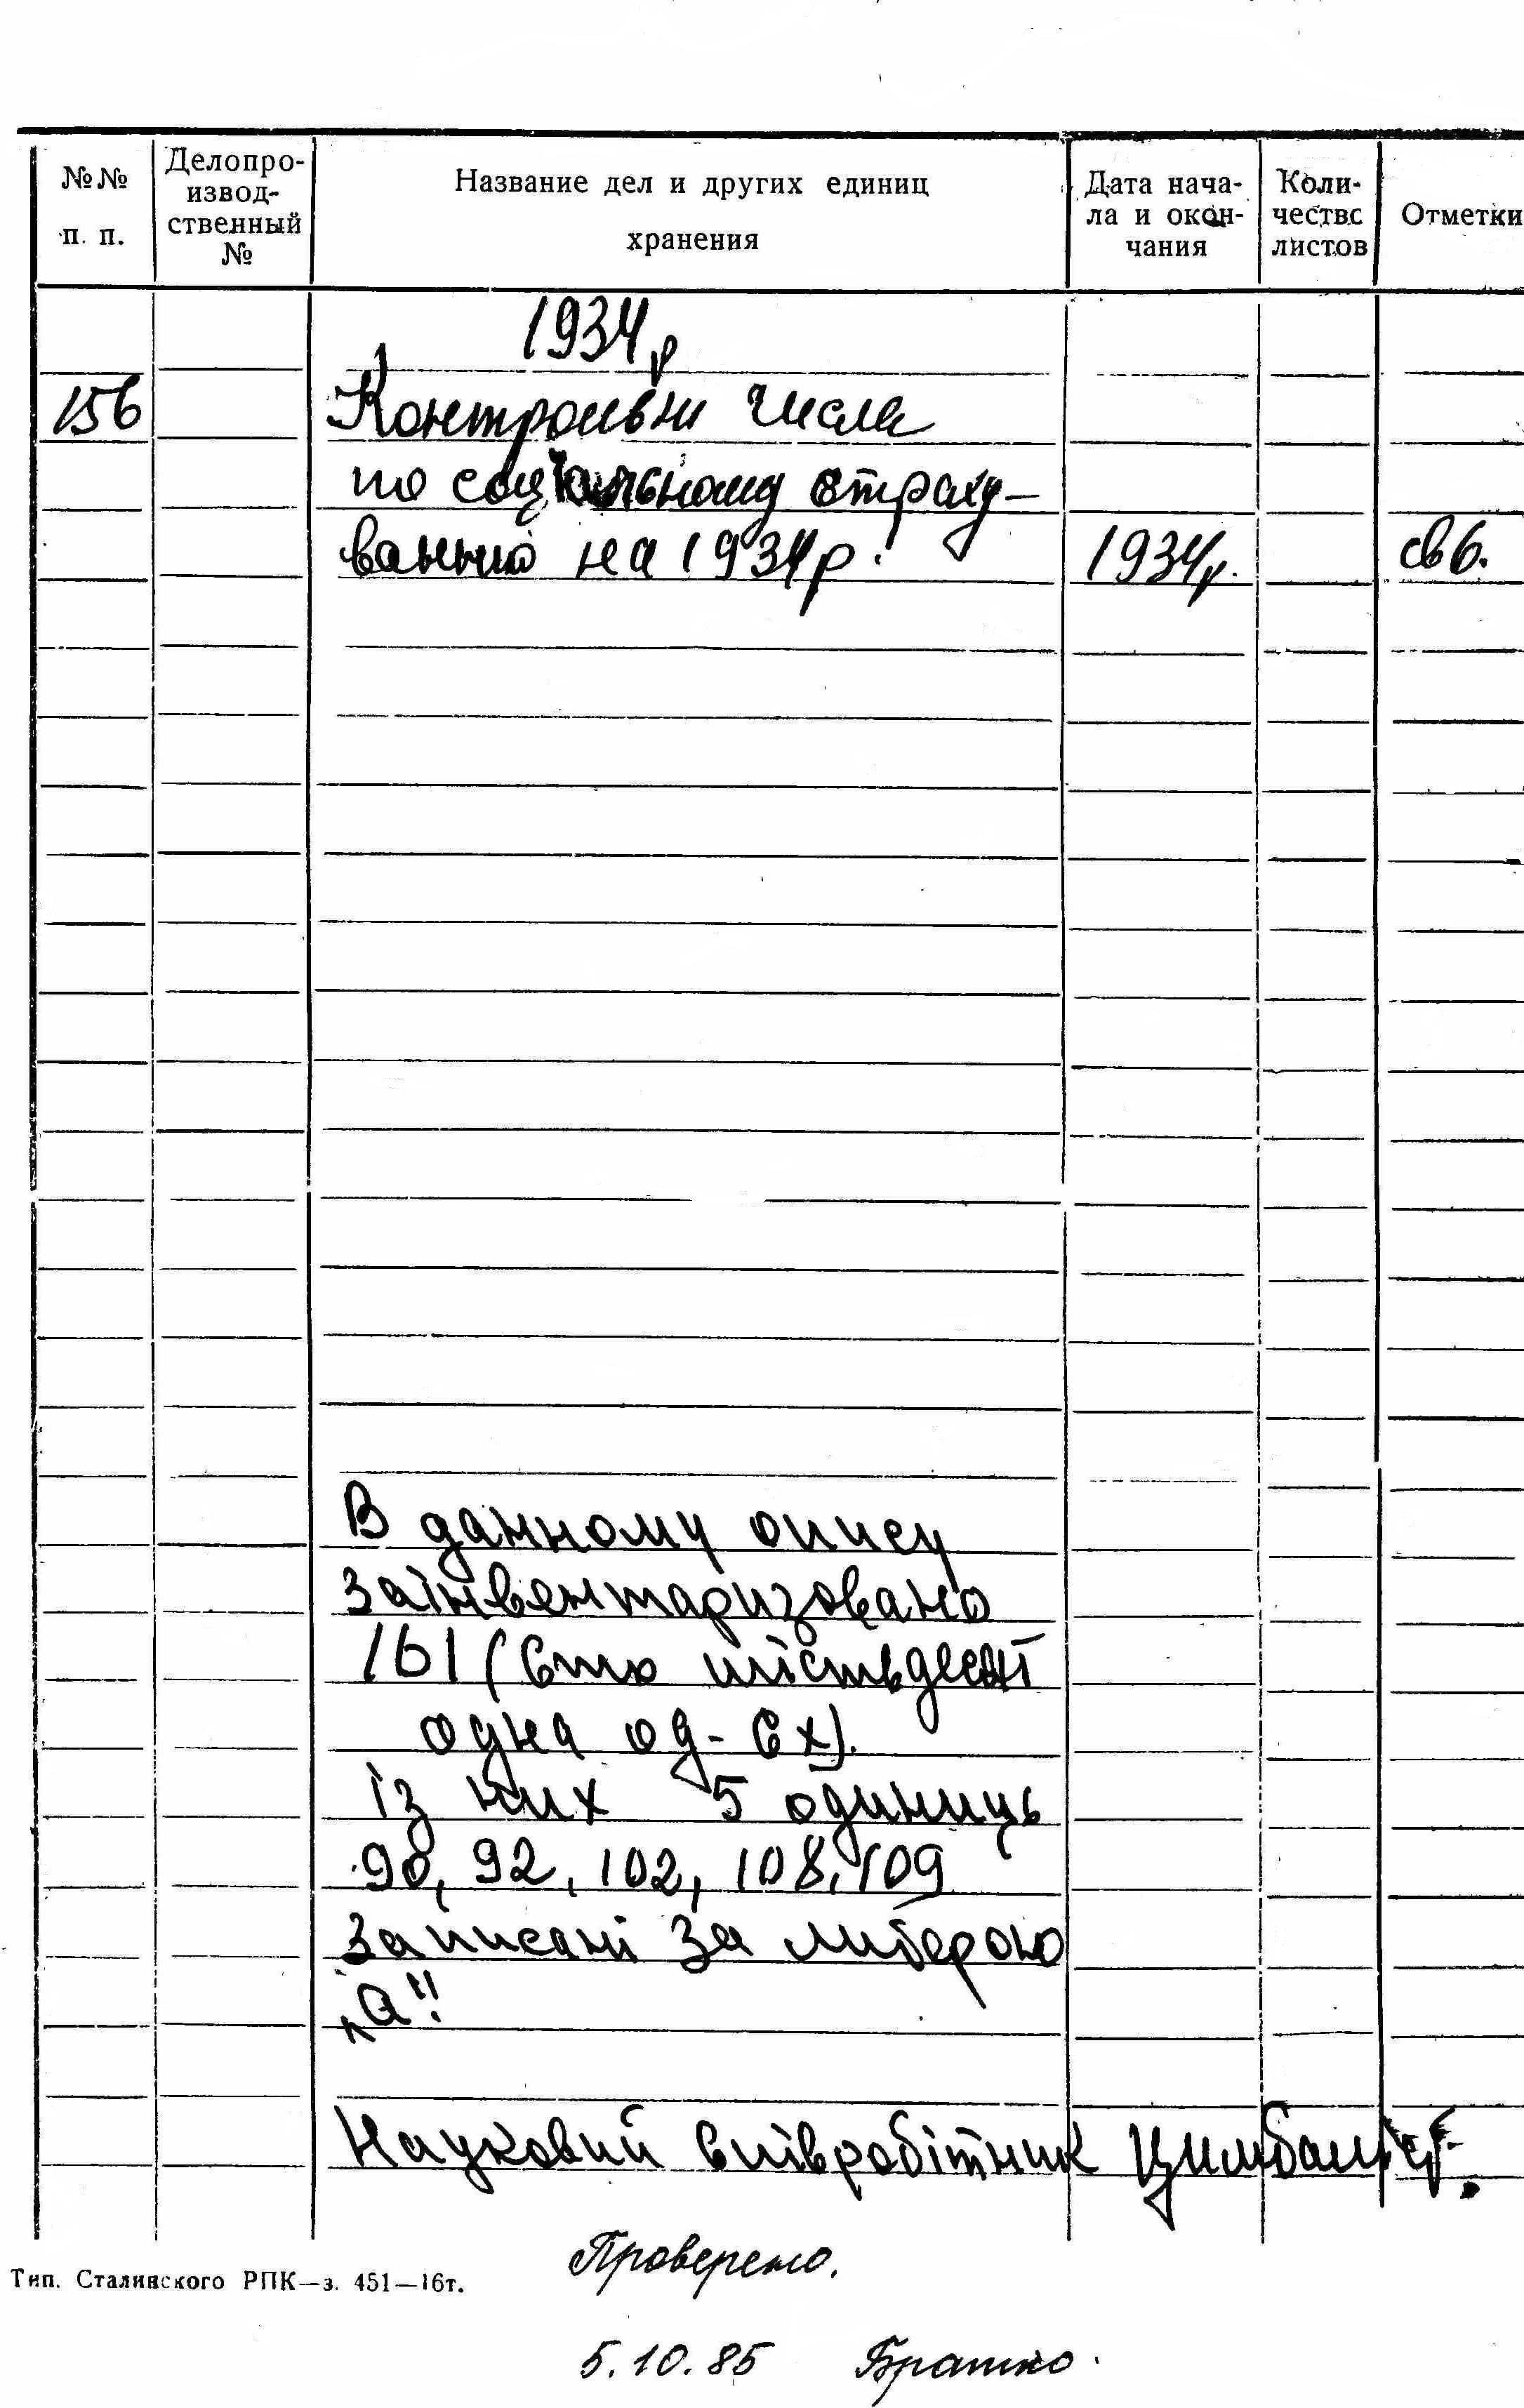 №№ п. п.
Делопро-
извод-
ственный
№
Название дел и других единиц
хранения
Дата нача-
ла и окон-
чания
Коли-
чество
листов
Отметки
1934р
156
Контрольни числа
по соціальному страху-
ванню на 1934р.
1934р.
св 6.
В данному опису
заінвентаризовано
161 (Сто шістьдесят
одна од- сх).
із них 5 одиниць
90, 92, 102, 108, 109
записані за литерою
„а"
Науковий співробітник
Тип. Сталинского РПК—з. 451—16т.
Проверено.
5.10.85 Братко.